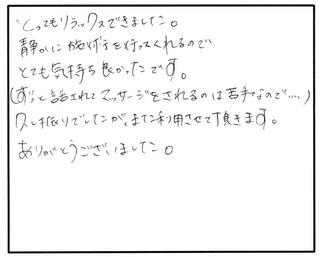 とってもリラックスできました。
静かに施術を行ってくれるので
とても気持ち良かったです。
(ずっと話されてマッサージをされるのは苦手なので.....)
久し振りでしたが、また利用させて頂きます。
ありがとうございました。